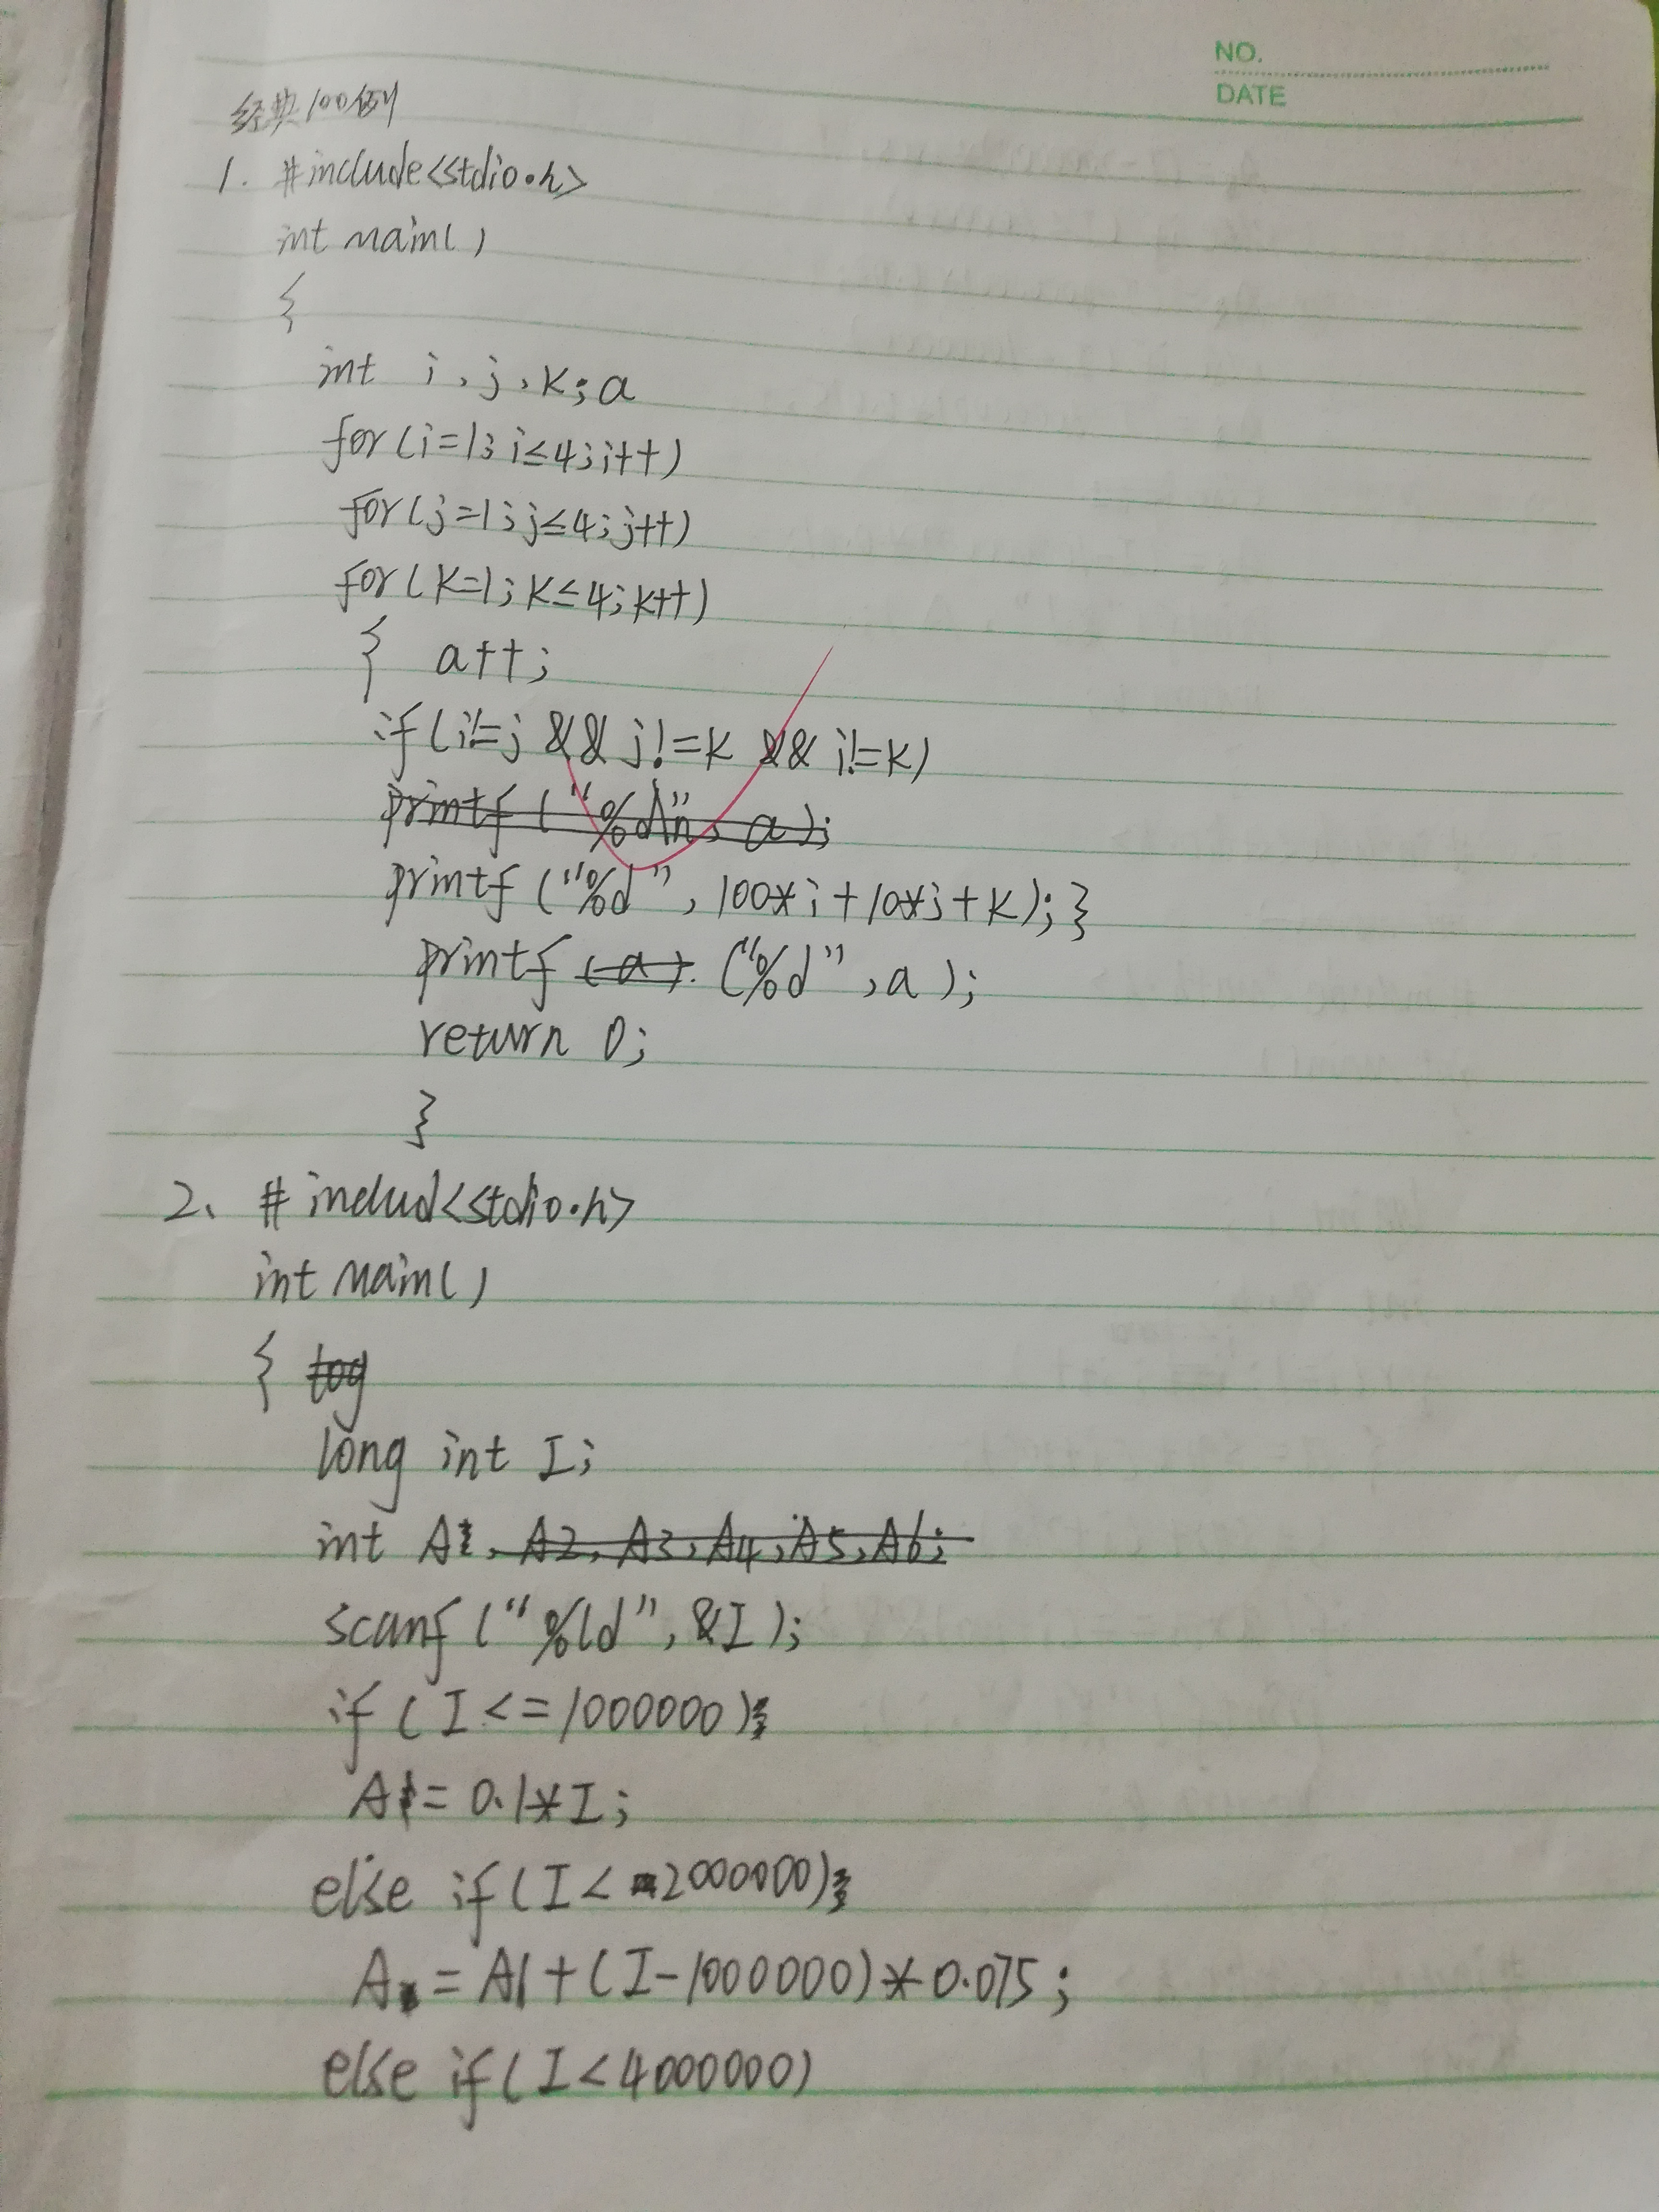 NO.
DATE
经典100例
1. #include<stdio.h>
int main()
{
int i, j, k; a
for(i=1; i≤4; i++)
for(j=1; j≤4; j++)
for(k=1; k≤4; k++)
{ a++;
if(i!=j && j!=k && i!=k)
printf("%d\n", a);
printf("%d", 100*i+10*j+k);}
printf (a). ("%d", a);
return 0;
}
2、 #includ<stdio.h>
int main()
{ tog
long int I;
int A1, A2, A3, A4, A5, A6;
scanf("%ld", &I);
if(I<=1000000)
A1=0.1*I;
else if(I<2000000)
A=A1+(I-1000000)*0.075;
else if(I<4000000)